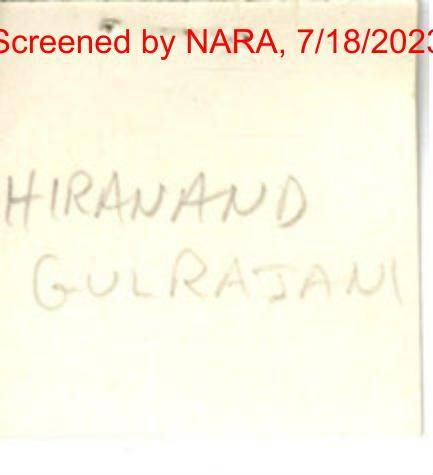 Screened by NARA, 7/18/2023
HIRANAND
GULRAJANI